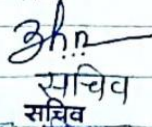 सचिव
सचिव